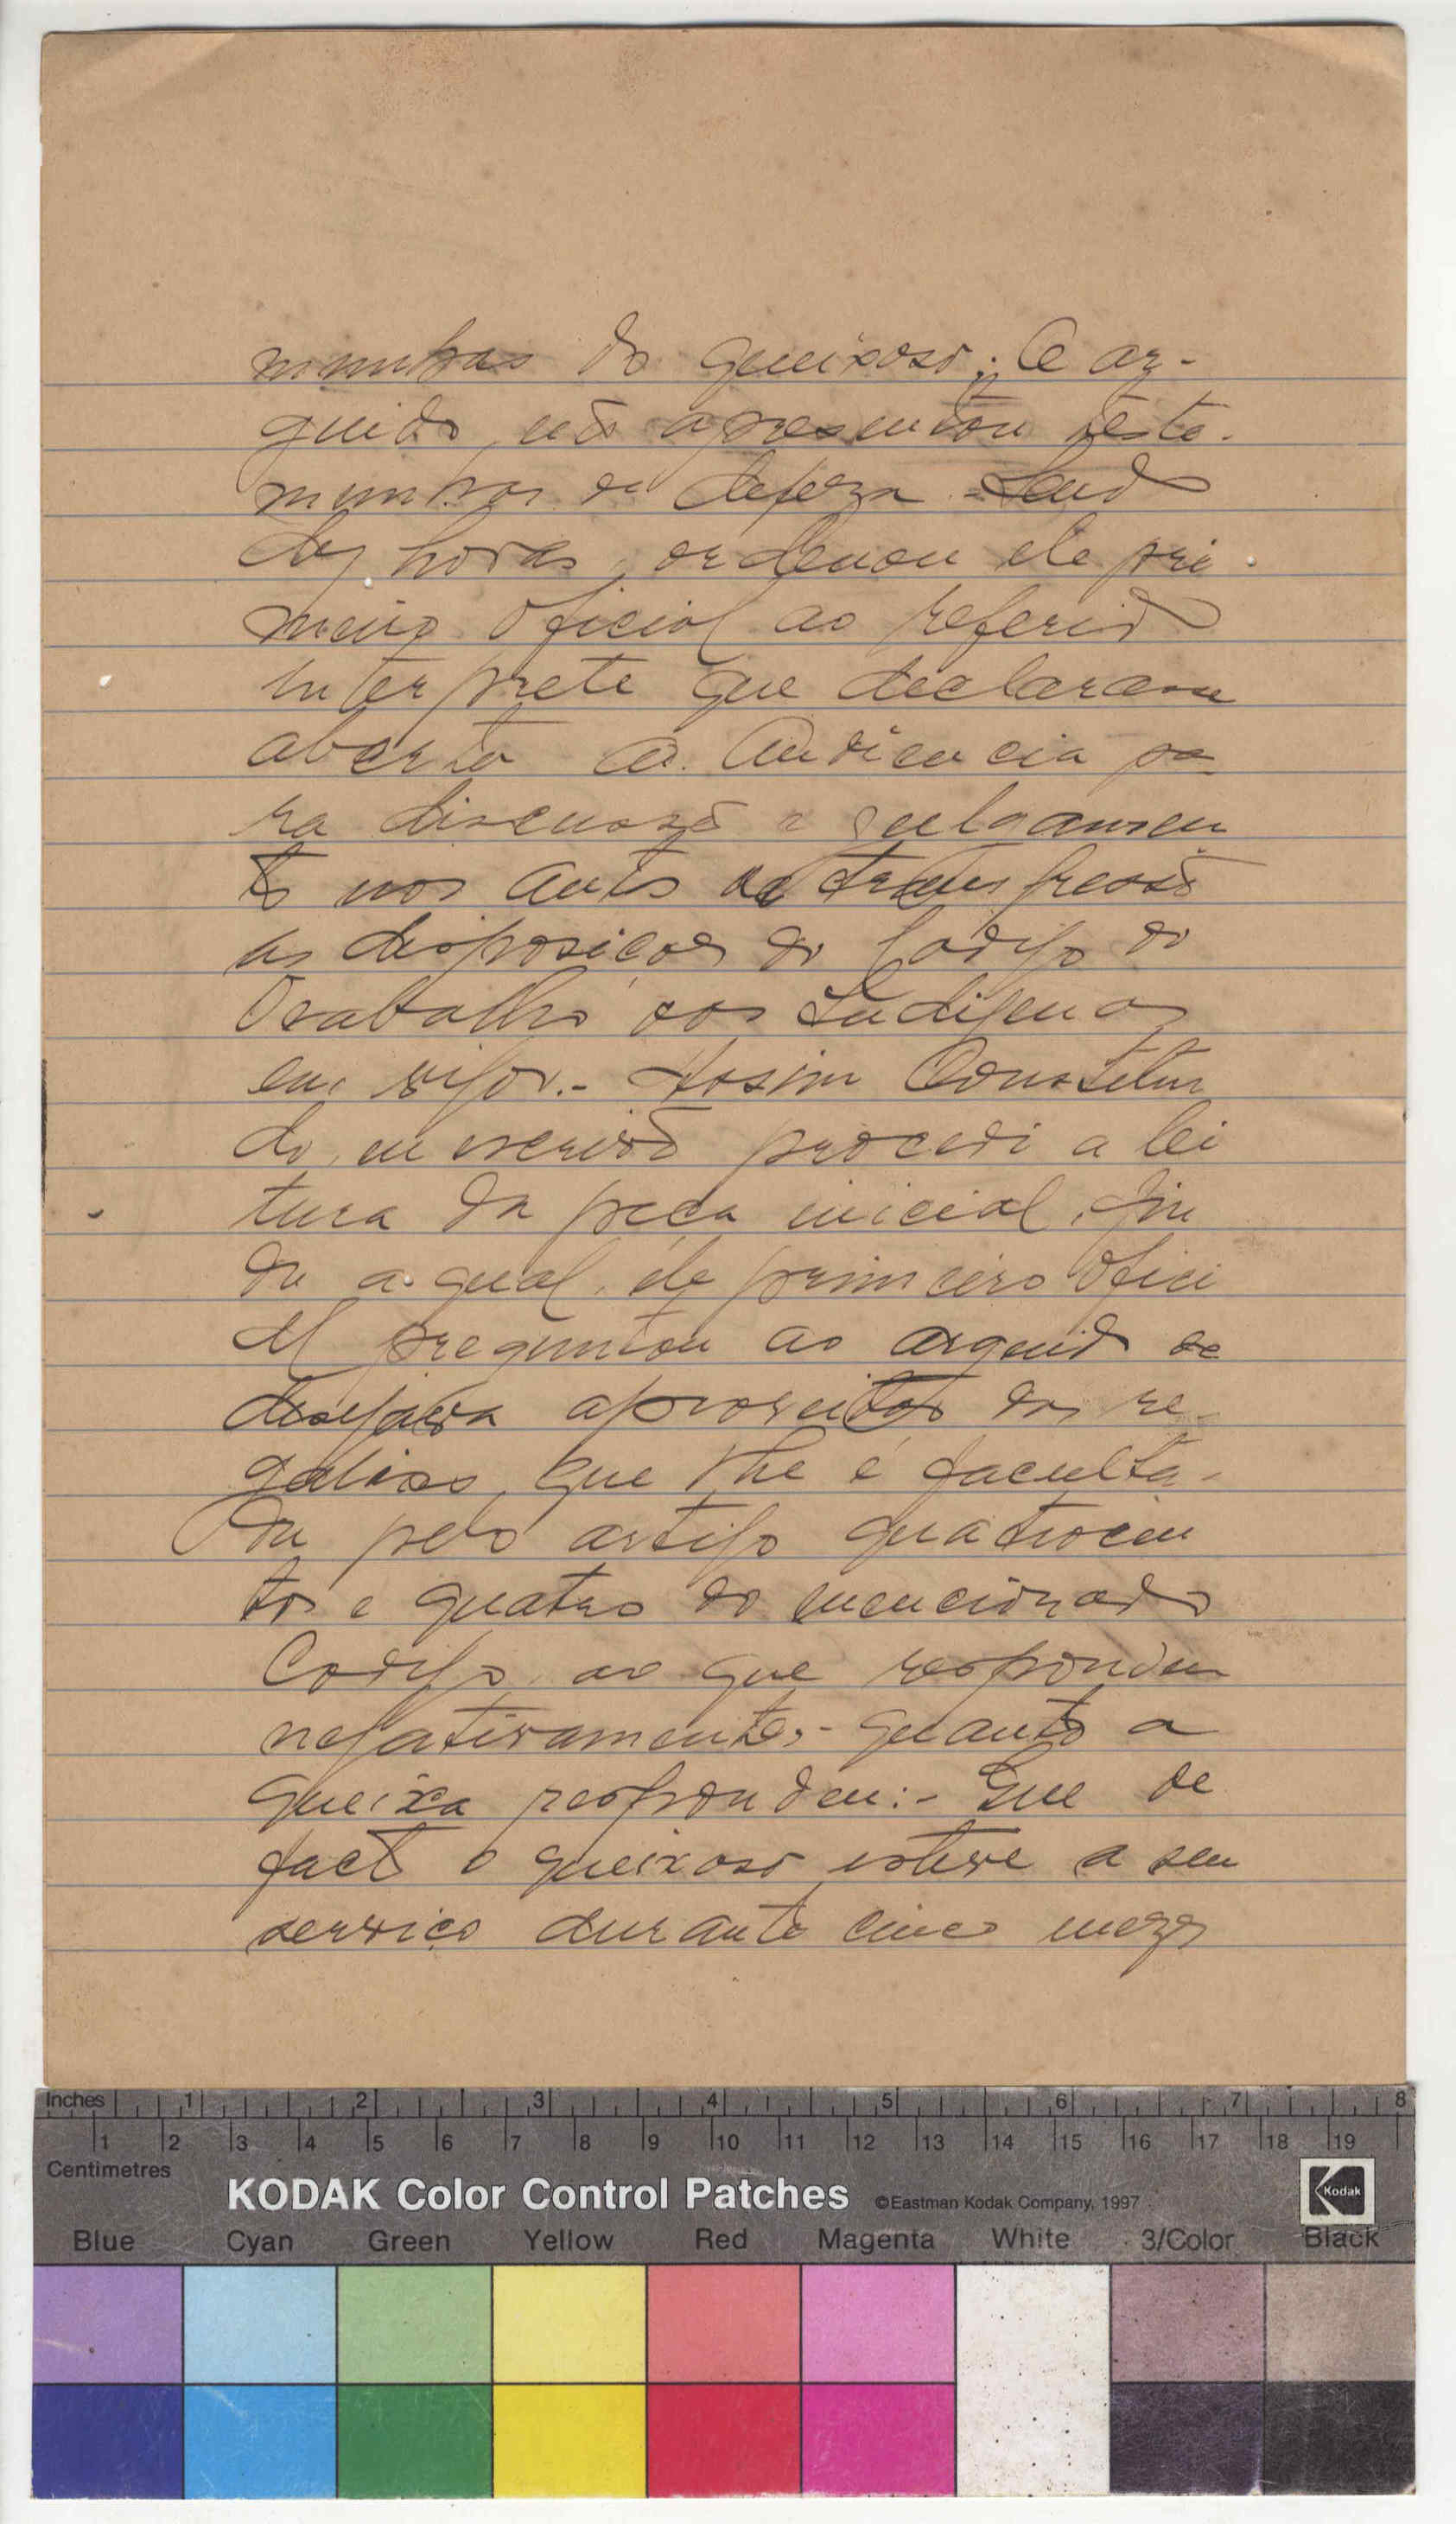 munhas do queixoso; O ar-
guido não apresentou teste-
munhas de defeza. Sendo
dez horas, ordenou ele pri-
meiro oficial ao referido
interprete que declarasse
aberta a Audiencia pa-
ra discussão e julgamen
to nos autos de transgressão
as disposicoes do Codigo do
Trabalho dos Indigenas
em vigor.- Assim Constitui
do, eu escrivão procedi a lei
tura da peça inicial, fin
da a qual, ele primeiro ofici
al preguntou ao arguido se
desejava aproveitar das re-
galias que lhe é faculta-
da pelo artigo quatrocen
tos e quatro do mencionado
Codigo, ao que respondeu
negativamente.- Quanto a
queixa respondeu:- Que de
facto o queixoso esteve a seu
serviço durante cinco mezes
Inches 1 2 3 4 5 6 7 8
1 2 3 4 5 6 7 8 9 10 11 12 13 14 15 16 17 18 19
Centimetres
KODAK Color Control Patches ©Eastman Kodak Company, 1997 Kodak
Blue Cyan Green Yellow Red Magenta White 3/Color Black